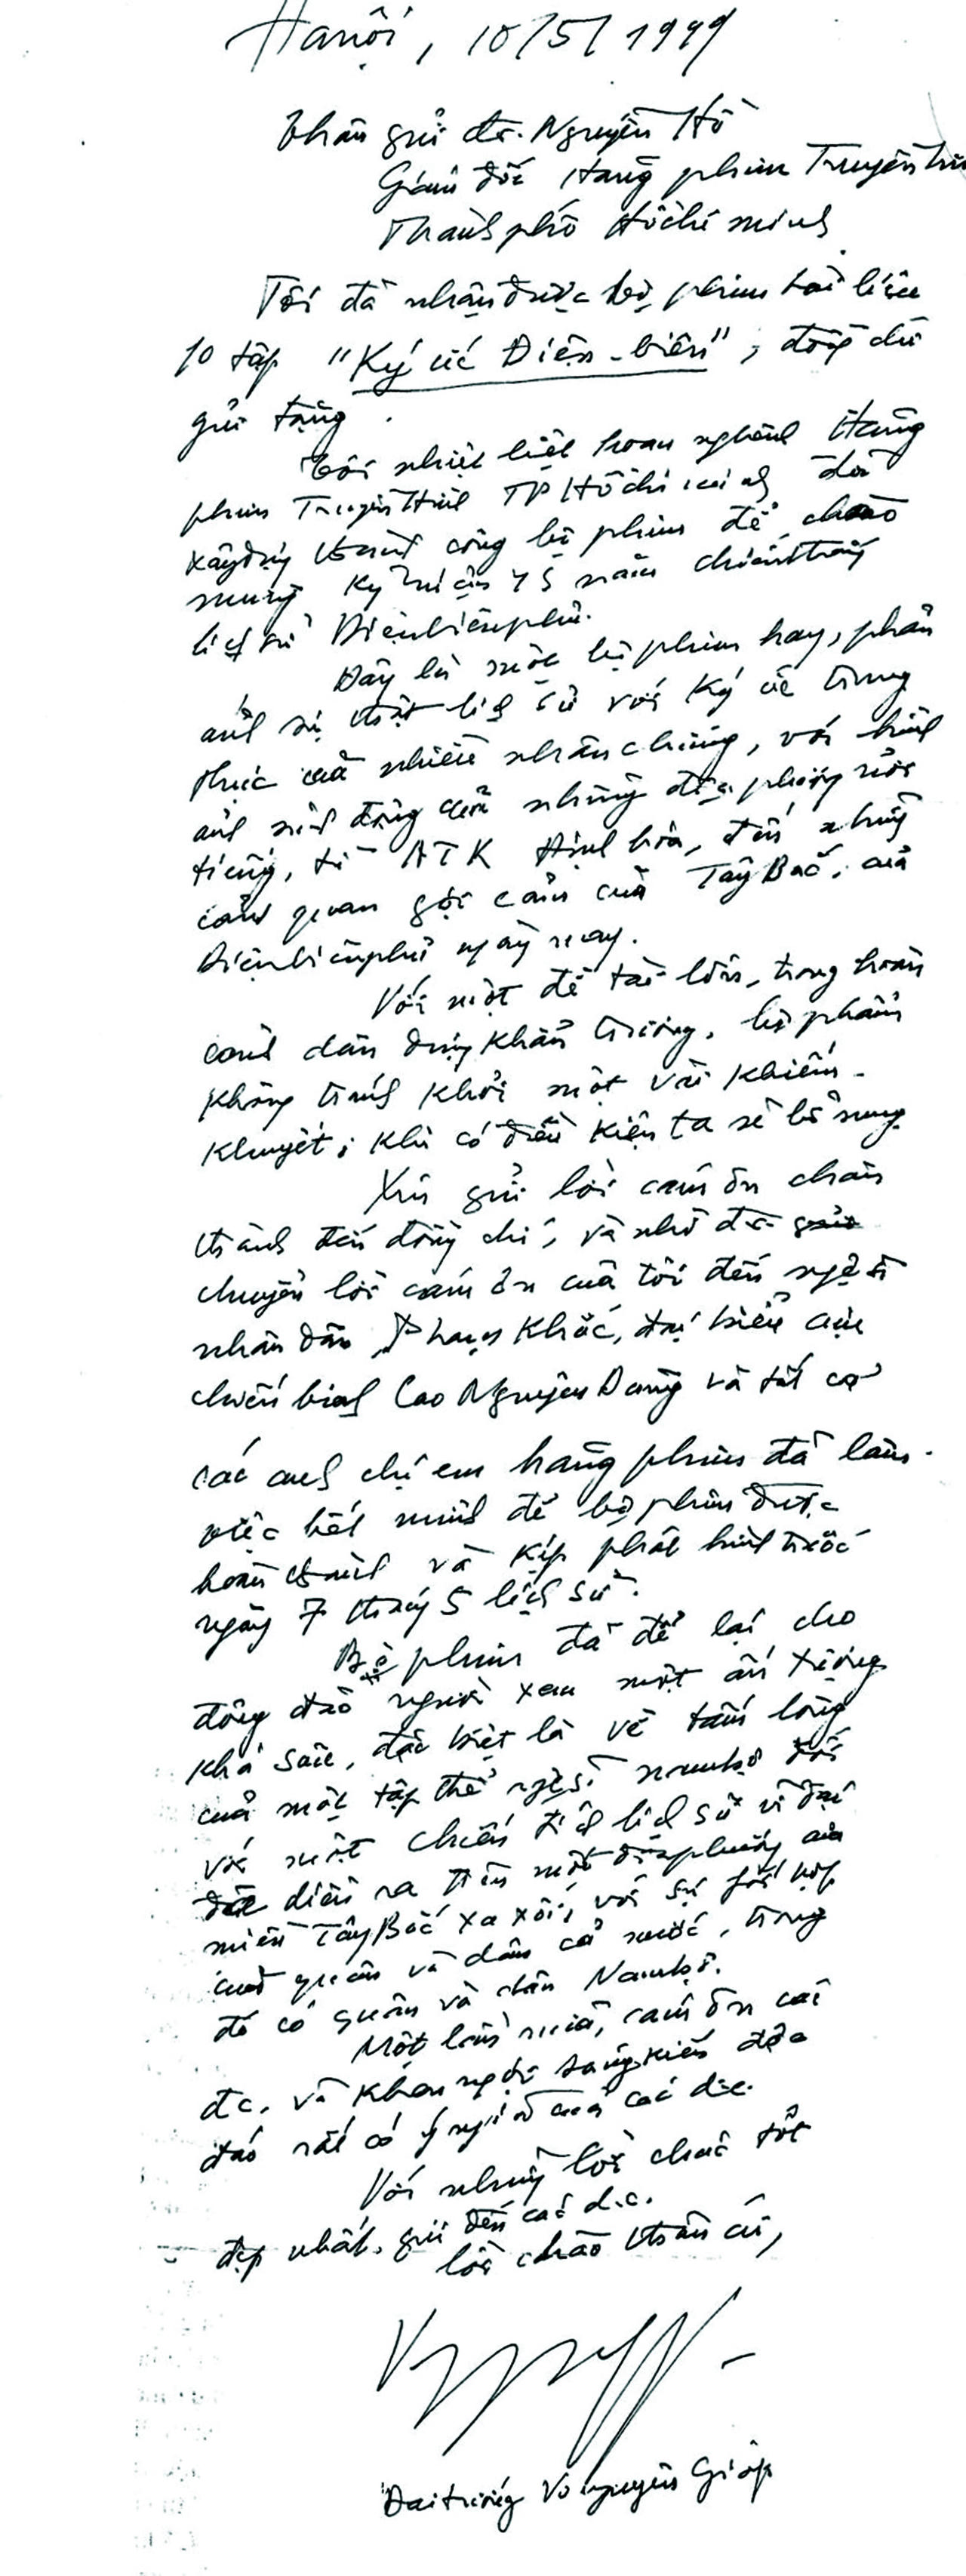 Hà nội, 10/5/1999
Thân gửi đ/c. Nguyễn Hồ
Giám đốc Hãng phim Truyền hình
Thành phố Hồ chí minh
Tôi đã nhận được bộ phim tài liệu
10 tập "Ký ức Điện-biên", đồng chí
gửi tặng.
Tôi nhiệt liệt hoan nghênh Hãng
phim Truyền Hình TP Hồ chí minh đã
xây dựng thành công bộ phim để chào
mừng kỷ niệm 45 năm chiến thắng
lịch sử Điện biên phủ.
Đây là một bộ phim hay, phản
ánh sự thật lịch sử với ký ức trung
thực của nhiều nhân chứng, với hình
ảnh sinh động của những địa phương nổi
tiếng, từ ATK Định hóa, đến những
cảnh quan gợi cảm của Tây Bắc, của
Điện biên phủ ngày nay.
Với một đề tài lớn, trong hoàn
cảnh dàn dựng khẩn trương, bộ phim
không tránh khỏi một vài khiếm-
khuyết; khi có điều kiện ta sẽ bổ sung
Xin gửi lời cám ơn chân
thành đến đồng chí, và nhờ đ/c
chuyển lời cám ơn của tôi đến nghệ sĩ
nhân dân Phạm Khắc, đại biểu cựu
chiến binh Cao Nguyên Dũng và tất cả
các anh chị em hãng phim đã làm
việc hết mình để bộ phim được
hoàn thành và kịp phát hình trước
ngày 7 tháng 5 lịch sử.
Bộ phim đã để lại cho
đông đảo người xem một ấn tượng
khá sâu, đặc biệt là về tấm lòng
của một tập thể nghệ sĩ nam bộ đối
với một chiến tích lịch sử vĩ đại
diễn ra trên một địa phương của
miền Tây Bắc xa xôi, với sự phối hợp
của quân và dân cả nước, trong
đó có quân và dân Nam bộ.
Một lần nữa, cám ơn các
đ/c. và khen ngợi sáng kiến độc
đáo rất có ý nghĩa của các đ/c.
Với những lời chúc tốt
đẹp nhất, gửi đến các đ.c.
lời chào thân ái,
Đại tướng Võ nguyên Giáp